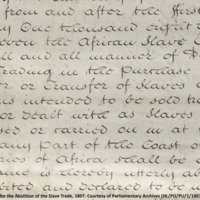 from and after the First
ay One thousand eight
even the African Slave
all and all manner of
Trading in the Purchase
r or Transfer of Slaves
ns intended to be sold tra
or dealt with as Slaves
ised or carried on in at
any part of the Coast o
ries of Africa shall be
ame is hereby utterly ab
bited and declared to be u
for the Abolition of the Slave Trade, 1807. Courtesy of Parliamentary Archives